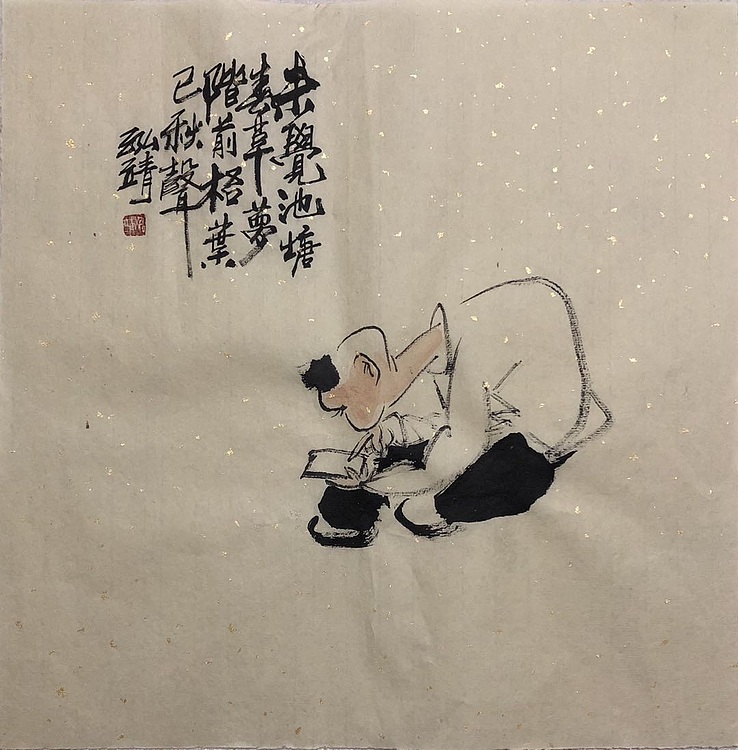 未覺池塘
春草夢
階前梧葉
已秋聲
弘靖